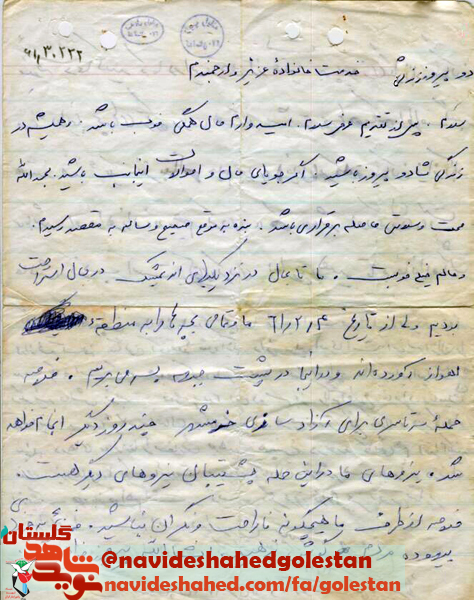 ۶۱٫۳۰۲۳۲
درود پیروز زندگی خدمت خانوادهٔ عزیز و ارجمندم
سلام. پس از تقدیم عرض سلام. امیدوارم حال همگی خوب باشد. و همیشه در
زندگی شاد و پیروز باشید. اگر جویای حال و احوالات اینجانب باشید بحمدالله
صحت و سلامتی حاصله برقرار می باشد. بنده به موقع صحیح و سالم به مقصد رسیدم.
و حالم خیلی خوبست. تا تا حال در نزدیکیهای اندیمشک در حال استراحت
بودیم ولی از تاریخ ۶۱/۲/۴ ما و تمامی بچه ها را به منطقه
اهواز آورده اند و در اینجا در پشت جبهه بسر می بریم. خلاصه
حمله سرتاسری برای آزادسازی خرمشهر چند روز دیگر انجام خواهد
شد. نیروهای ما در این حمله پشتیبانی نیروهای دیگر هست.
خلاصه از طرف ما هیچگونه ناراحت و نگران نباشید.
بیهوده مردم
گلستان
نوید شاهد
@navideshahedgolestan
navideshahed.com/fa/golestan